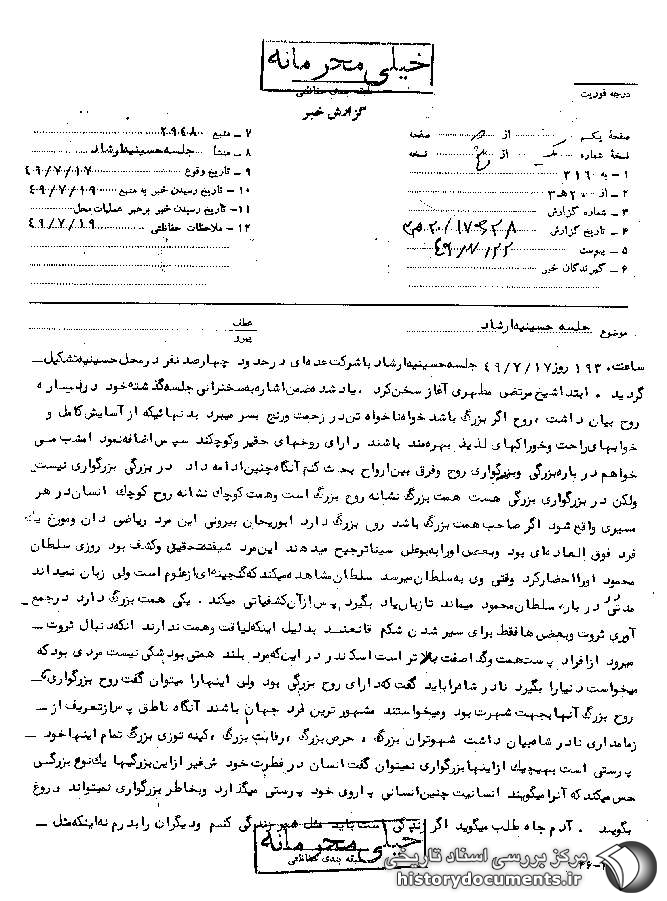 خیلی محرمانه
طبقه بندی حفاظتی
گزارش خبر
درجه فوریت
صفحهٔ یکم از صفحه
نسخهٔ شماره یک از نسخه
۱ – به ۳۱۶
۲ – از ۲۰ هـ ۳
۳ – شماره گزارش
۴ – تاریخ گزارش
۵ – پیوست
۶ – گیرندگان خبر
۷ – منبع ۲۰۹۴۸۰
۸ – منشأ جلسه حسینیه ارشاد
۹ – تاریخ وقوع ۴۹/۷/۱۷
۱۰ – تاریخ رسیدن خبر به منبع ۴۹/۷/۱۹
۱۱ – تاریخ رسیدن خبر برهبر عملیات محل
۱۲ – ملاحظات حفاظتی ۴۹/۷/۱۹
موضوع جلسه حسینیه ارشاد
عطف
پیرو
ساعت ۱۹۳۰ روز ۴۹/۷/۱۷ جلسه حسینیه ارشاد باشرکت عده‌ای در حدود چهارصد نفر در محل حسینیه تشکیل
گردید . ابتدا شیخ مرتضی مطهری آغاز سخن کرد . یاد شده ضمن اشاره به سخنرانی جلسه گذشته خود در باره
روح بیان داشت ، روح اگر بزرگ باشد خواه ناخواه تن در زحمت ورنج بسر میبرد بدنهائیکه از آسایش کامل و
خوابهای راحت و خوراکهای لذیذ بهره‌مند باشند دارای روحهای حقیر وکوچکند سپس اضافه نمود امشب می
خواهم در باره بزرگی وبزرگواری روح وفرق بین ارواح بحث کنم آنگاه چنین ادامه داد در بزرگی بزرگواری نیست
ولکن در بزرگواری بزرگی هست همت بزرگ نشانه روح بزرگ است وهمت کوچک نشانه روح کوچک انسان در هر
مسیری واقع شود اگر صاحب همت بزرگ باشد روح بزرگ دارد ابوریحان بیرونی این مرد ریاضی دان ومورخ یک
فرد فوق العاده‌ای بود وبعضی اورا به بوعلی سینا ترجیح میدهند این مرد شیفته تحقیق وکشف بود روزی سلطان
محمود اورا احضار کرد وقتی وی به سلطان میرسد سلطان مشاهده میکند که گنجینه‌ای از علوم است ولی زبان نمیداند
مدتی در بار سلطان محمود میماند تا زبان یاد بگیرد پس از آن کشفیاتی میکند . یکی همت بزرگ دارد در جمع
آوری ثروت وبعضی ها فقط برای سیر شدن شکم قانعند بدلیل اینکه لیاقت وهمت ندارند آنکه دنبال ثروت
میرود از افراد پست همت وگدا صفت بالاتر است اسکندر در این که مرد بلند همتی بود شکی نیست مردی بود که
میخواست دنیا را بگیرد نادر شاه را باید گفت که دارای روح بزرگی بود ولی اینها را میتوان گفت روح بزرگواری
روح بزرگ آنها بجهت شهرت بود ومیخواستند مشهور ترین فرد جهان باشند آنگاه ناطق پس از تعریف از
زمامداری نادر شاه بیان داشت شهوتران بزرگ ، حرص بزرگ ، رقابت بزرگ ، کینه توزی بزرگ تمام اینها خود
پرستی است بهیچیک از اینها بزرگواری نمیتوان گفت انسان در فطرت خود غیر از این بزرگیها یک نوع بزرگی
حس میکند که آنرا میگویند انسانیت چنین انسانی پا روی خود پرستی میگذارد وبخاطر بزرگواری نمیتواند دروغ
بگوید . آدم جاه طلب میگوید اگر زندگی است باید مثل زندگی کنم ودیگران را بدرم نه اینکه مثل
خیلی محرمانه
طبقه بندی حفاظتی
مرکز بررسی اسناد تاریخی
historydocuments.ir